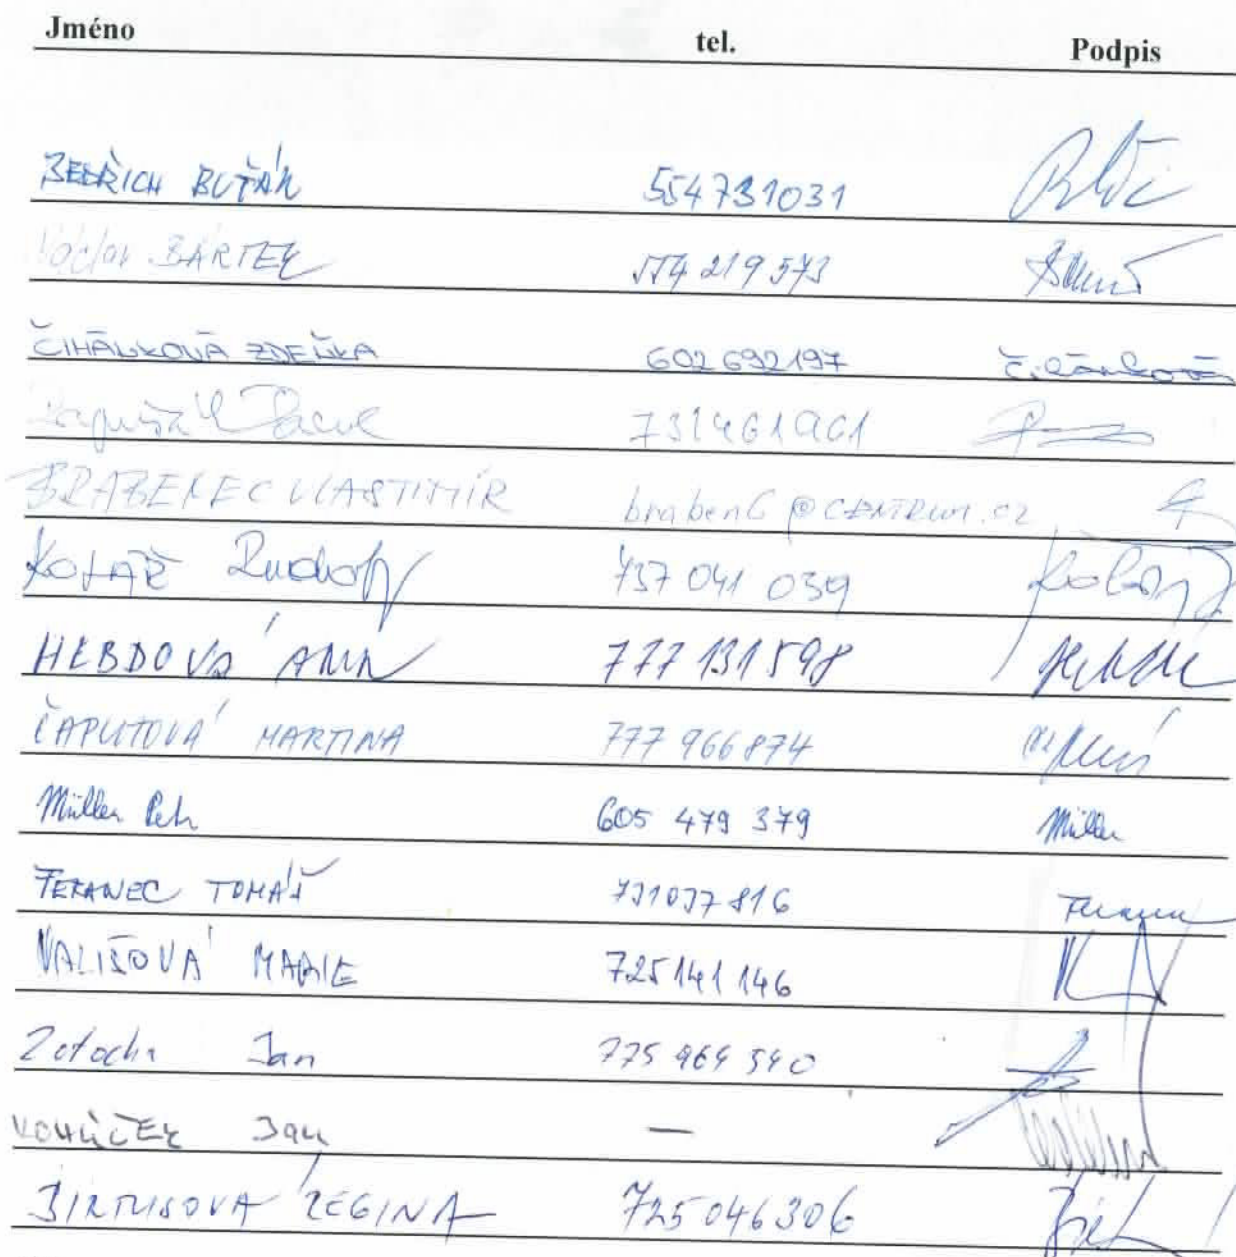 Jméno tel. Podpis
BEDŘICH BUŤÁK 554731031
Václav BÁRTEK 554 219 573
ČIHÁLKOVÁ ZDEŇKA 602 692197
731461961
BRABENEC VLASTIMÍR braben6@CENTRUM.cz
KOLÁŘ Rudolf 737 041 039 Kolář
HEBDOVÁ ANNA 777 131 598
ČAPUTOVÁ MARTINA 777 966 874
Müller Petr 605 479 379 Müller
FERANEC TOMÁŠ 731037816
VALIŠOVÁ MARIE 725 141 146
Zotocha Jan 775 964 540
KOHÚČEK Jan —
BIRTUSOVÁ REGINA 725 046 306